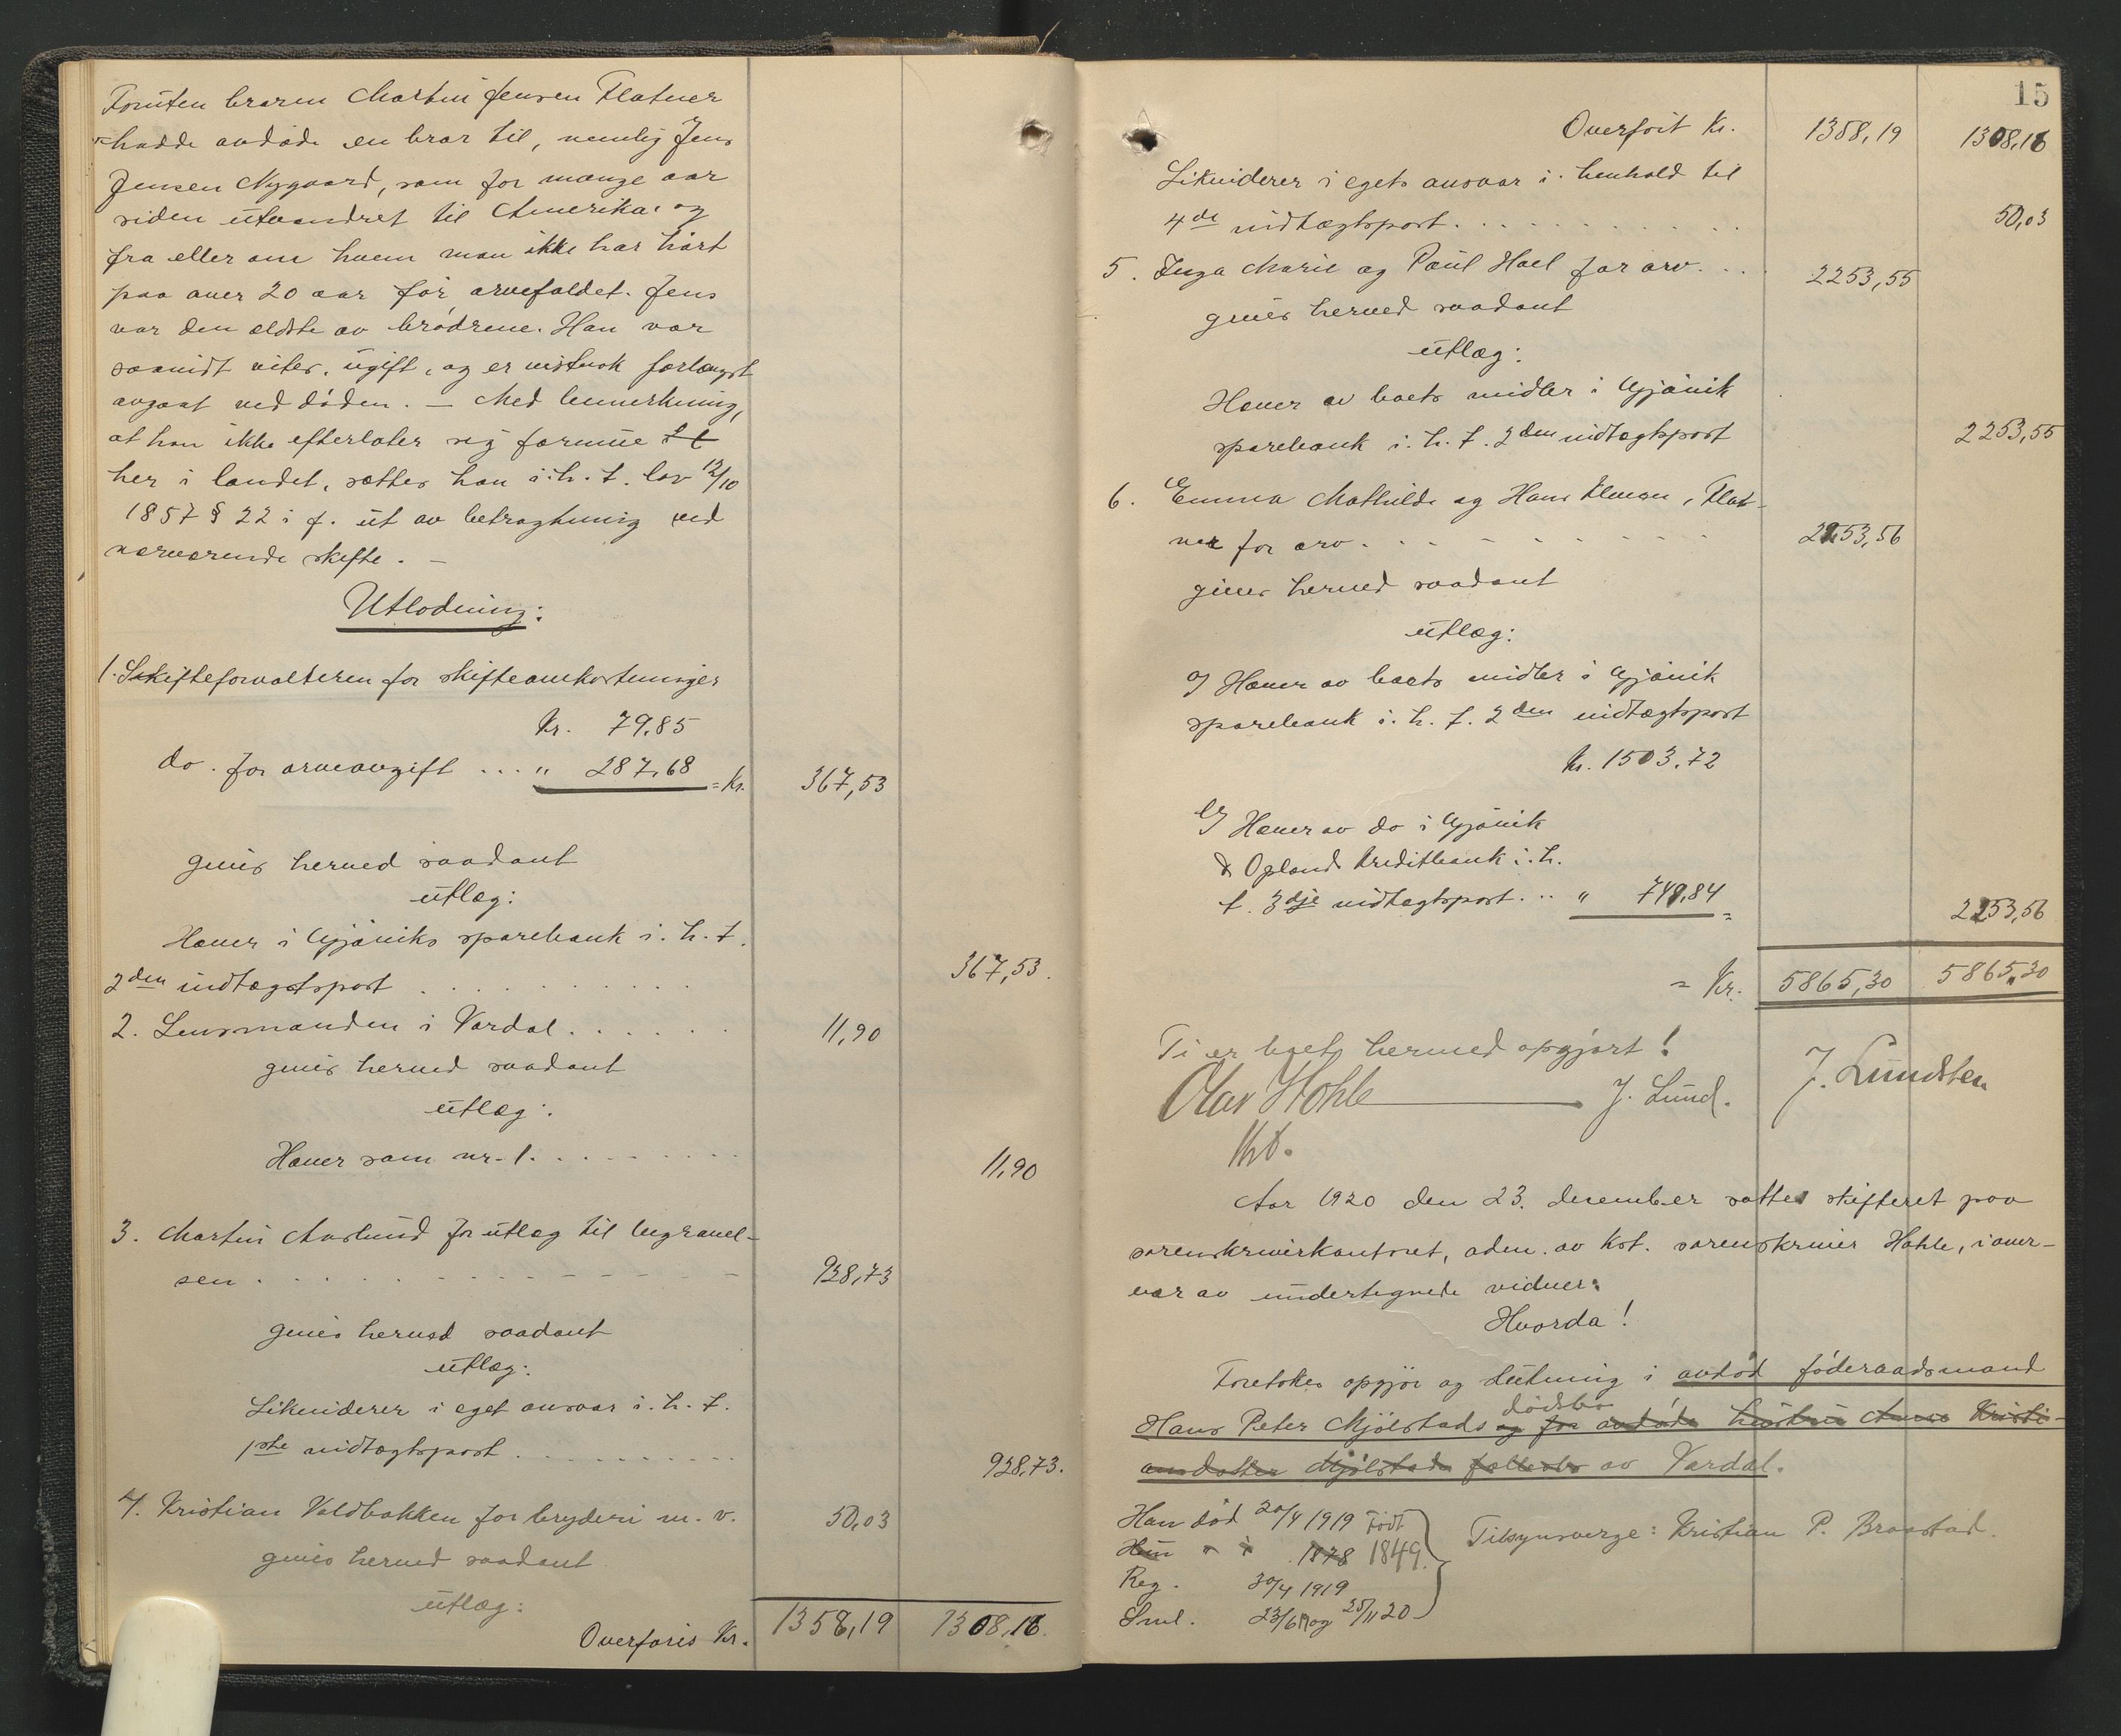 Foruten broren Martin Jensen Flatner
hadde avdøde en bror til, nemlig Jens
Jensen Nygaard, som for mange aar
siden utvandret til Amerika, og
fra eller om hvem man ikke har hørt
paa over 20 aar før arvefaldet. Jens
var den ældste av brødrene. Han var
saavidt vites, ugift, og er vistnok forlængst
avgaat ved døden. — Med bemerkning,
at han ikke efterlater sig formue
her i landet, sættes han i. h. t. lov 12/10
1857 § 22 i f. ut av betragtning ved
nærværende skifte. —
Utlodning:
1. Skifteforvalteren for skifteomkostninger
Kr. 79.85
do. for arveavgift ... " 287.68 = Kr. 367,53
gives herved saadant
utlæg:
Hæver i Gjøviks sparebank i. h. t.
2den indtægtspost . . . . . . . . . . 367,53.
2. Lensmanden i Vardal . . . . . . 11,90
gives herved saadant
utlæg:
Hæver som nr. 1. . . . . . . . . 11,90
3. Martin Aaslund for utlæg til begravel-
sen . . . . . . . . . . . 928,73
gives herved saadant
utlæg:
Likviderer i eget ansvar i. h. t.
1ste indtægtspost . . . . . . . . . . 928,73.
4. Kristian Voldbakken for bryderi m. v. 50,03
gives herved saadant
utlæg:
Overføris Kr. 1358,19 1308,16.
15
Overført Kr. 1358,19 1308,16
Likviderer i egets ansvar i. henhold til
4de indtægtspost . . . . . . . . . . . . 50,03
5. Inga Marie og Paul Hoel for arv. . . . 2253,55
gives herved saadant
utlæg:
Hæver av boets midler i Gjøvik
sparebank i. h. t. 2den indtægtspost 2253,55
6. Emma Mathilde og Hans Klausen, Flat-
ner for arv . . . . . . . . . . 2253,56
gives herved saadant
utlæg:
a) Hæver av boets midler i Gjøvik
sparebank i. h. t. 2den indtægtspost
Kr. 1503.72
b) Hæver av do i Gjøvik
& Opland Kreditbank i. h.
t. 3dje indtægtspost. .. " 749,84 = 2253,56
= Kr. 5865,30 5865,30
Ti er boets hermed opgjort!
Olav Hohle J. Lund. J. Lundsten
Kst.
Aar 1920 den 23. desember sattes skifteret paa
sorenskriverkontoret, adm. av Kst. sorenskriver Hohle, i over-
vær av undertegnede vidner:
Hvorda!
Foretokes opgjør og slutning i avdød føderaadsmand
dødsbo
Hans Peter Mjølstads og for avdøde hustru Anne Kristi-
ansdatter Mjølstads fællesbo av Vardal.
Han død 20/4 1919 Født
Hun " " 1878 1849.
Reg. 30/4 1919
Sml. 23/6 19 og 25/11 20
Tilsynsverge: Kristian P. Braastad.